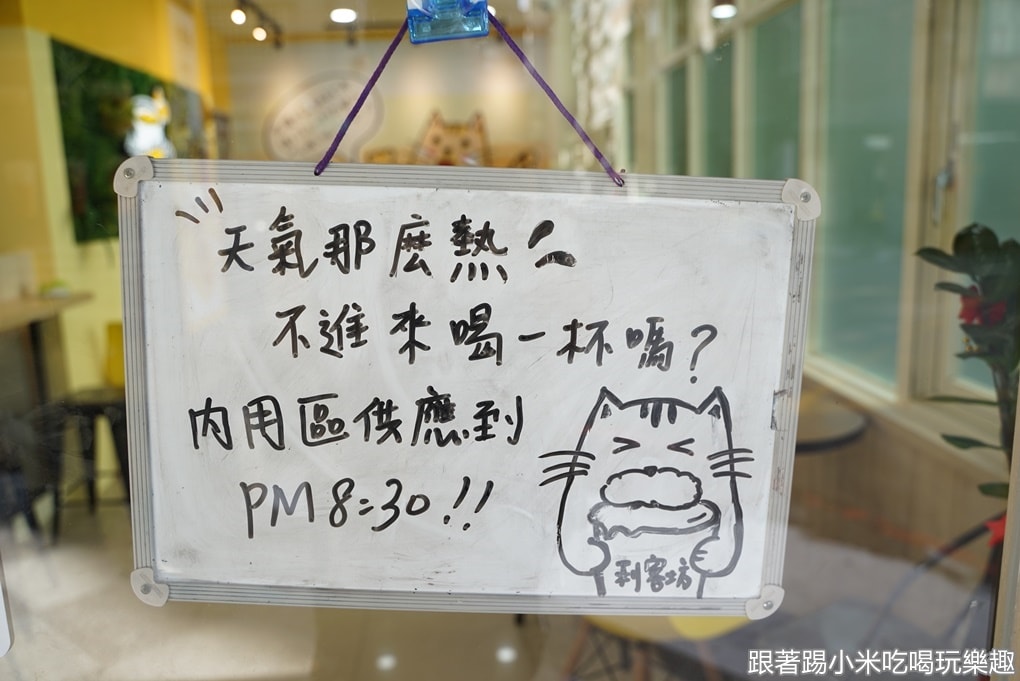 天氣那麼熱ㄟ
不進來喝一杯嗎?
內用區供應到
PM 8:30!!
利客坊
跟著踢小米吃喝玩樂趣